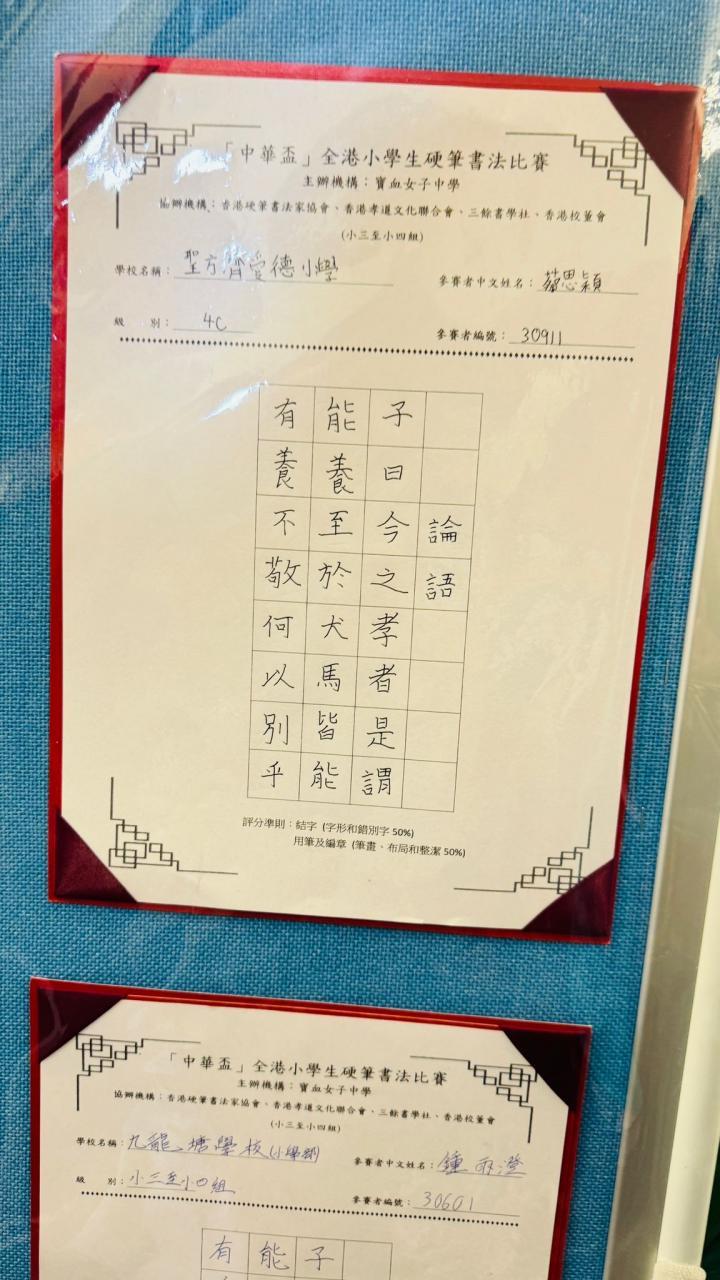 「中華盃」全港小學生硬筆書法比賽
主辦機構：寶血女子中學
協辦機構：香港硬筆書法家協會、香港孝道文化聯合會、三餘書學社、香港校董會
(小三至小四組)
學校名稱：聖方濟愛德小學
參賽者中文姓名：蔡思穎
級　別：4C
參賽者編號：30911
論語
子曰今之孝者是謂
能養至於犬馬皆能
有養不敬何以別乎
評分準則：結字 (字形和錯別字 50%)
用筆及編章 (筆畫、布局和整潔 50%)
「中華盃」全港小學生硬筆書法比賽
主辦機構：寶血女子中學
協辦機構：香港硬筆書法家協會、香港孝道文化聯合會、三餘書學社、香港校董會
(小三至小四組)
學校名稱：九龍塘學校(小學部)
參賽者中文姓名：鍾 澄
級　別：小三至小四組
參賽者編號：30601
子
能
有